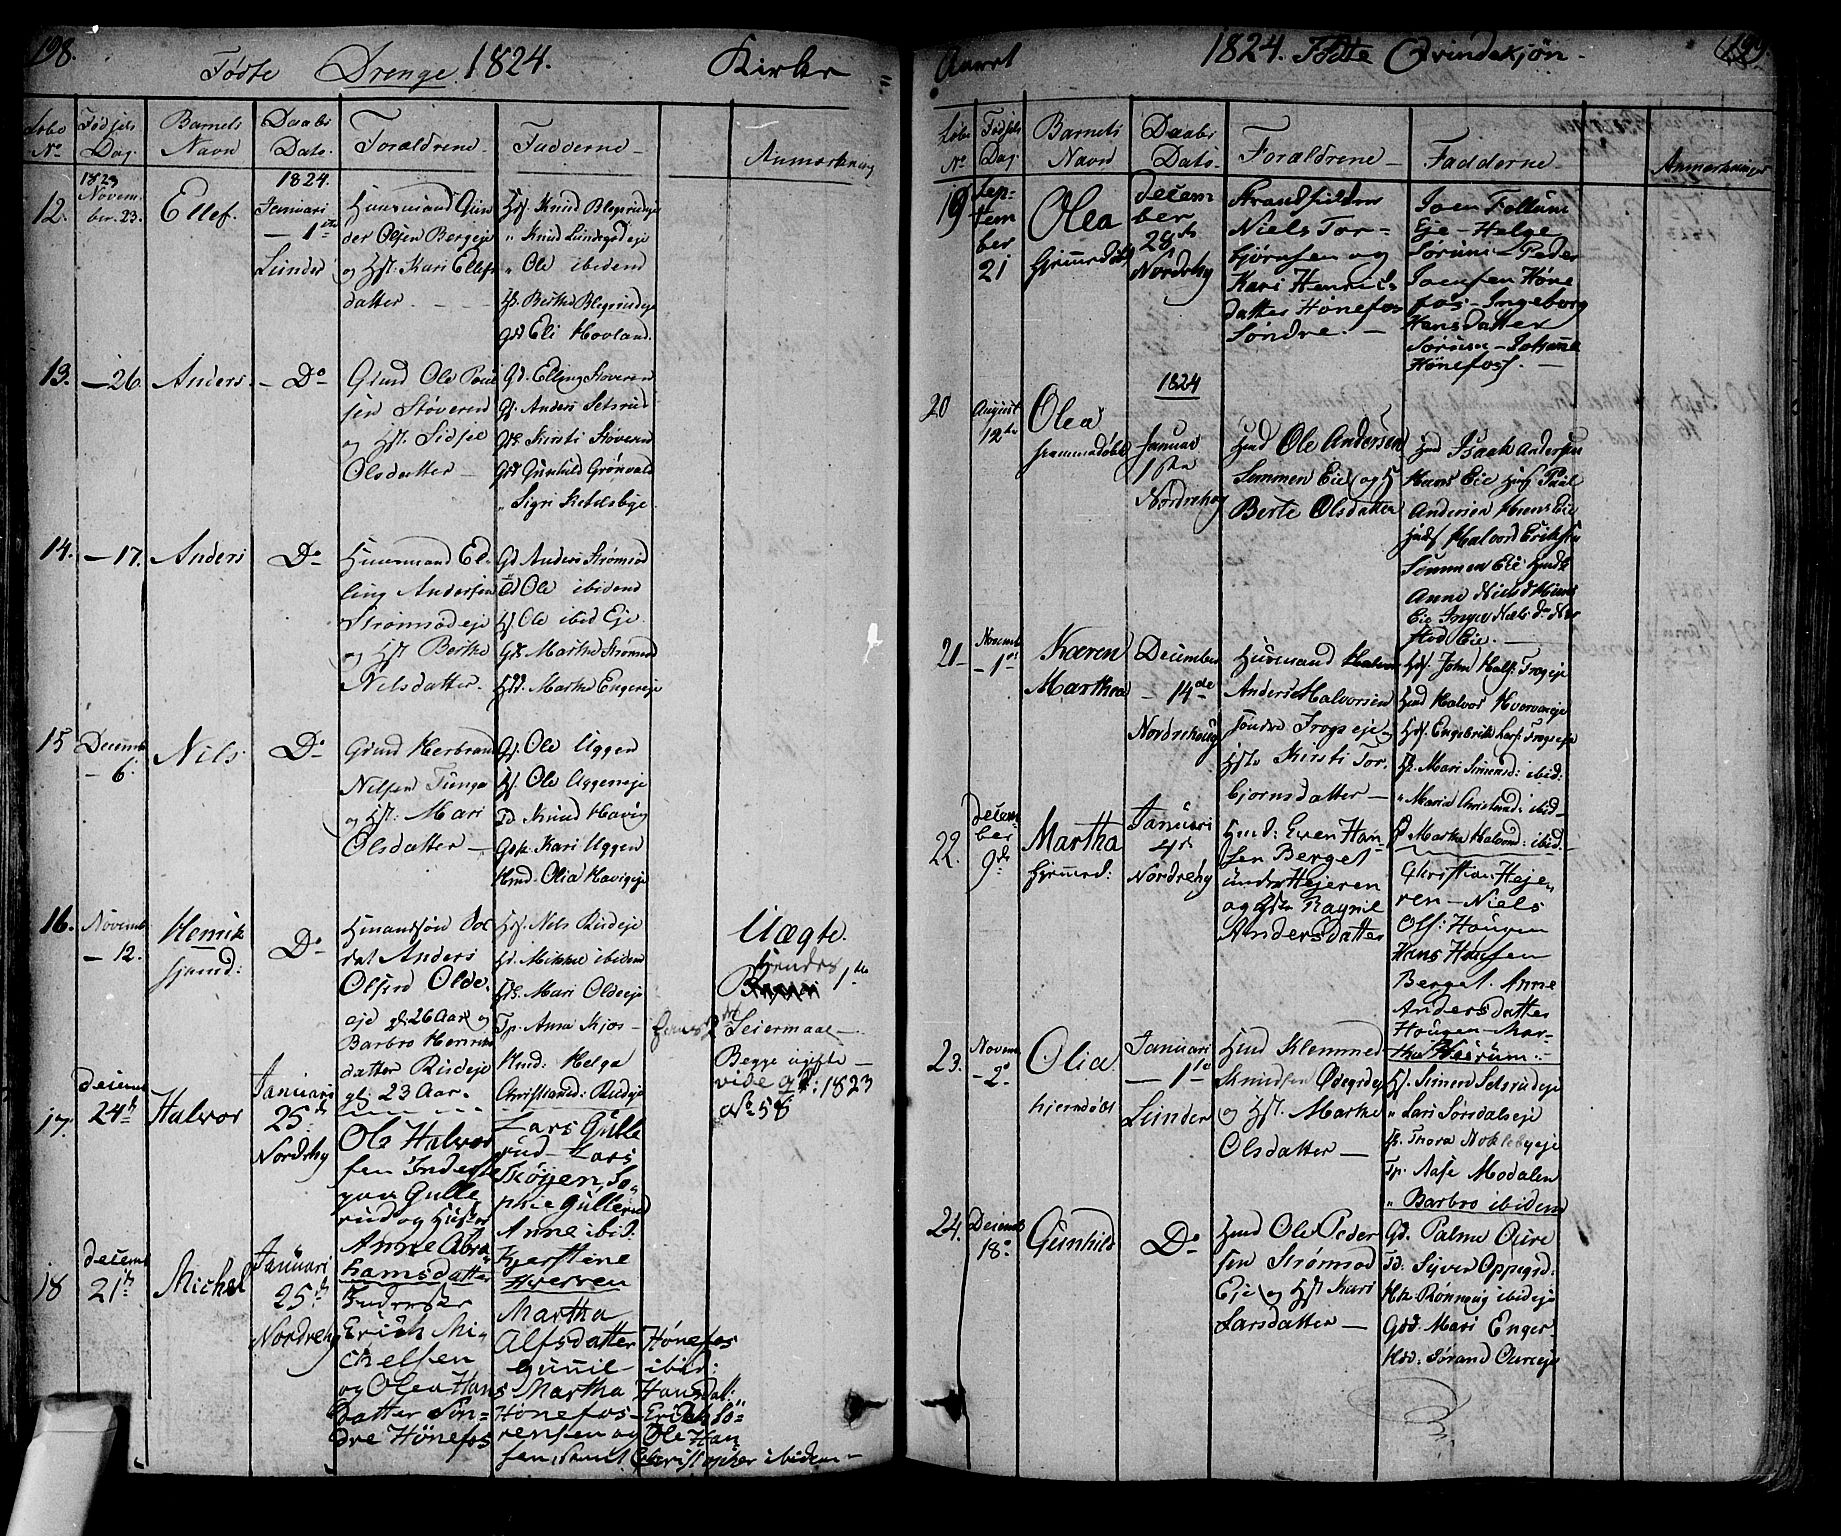 198.
Fødte Drenge 1824. Kirke
Løbe No
Fødsels Dag
Barnets Navn
Daabs Dato
Forældrene
Fadderne
Anmerkning
12.
1823 Novem-
ber 23.
Ellef.
1824.
Januari
1ste
Lunder
Huusmand Gun
der Olsen Bergeje
og Hst. Kari Ellefs
datter
Hsf. Knud Blegsrudeje
" Knud Lundegrdeje
" Ole ibidend
Hs. Berthe Blegsrudeje
Gd Eli Hovland
13.
- 26.
Anders
- Do
Gmd Ole Poul
sen Støveren
og Hst. Sidsel
Olsdatter
Gd. Elling Støveren
Gf. Anders Setsrud
Gk. Kirsti Støveren
Gd Gunhild Grønvold
" Sigri Ketelsbye
14.
- 17.
Anders
Do
Huusmand El-
ling Andersen
Strømsodeje
og Hst Berthe
Nilsdatter
Gd Anders Strømsod
Ole ibidend
Hf. Ole ibid Eje
Gk. Marthe Strømsod
Hd. Marthe Engereje
15
Decemb
- 6.
Nils
Do
Gmd Herbrand
Nilsen Tunge
og Hst: Mari
Olsdatter
Gf. Ole Uggen
Hf. Ole Uggeneje
Knud Havig
Gk. Kari Uggen
Hmd. Olia Havigeje
16.
Novemb
- 12.
Henrik
hjemd:
Do
Anders
Olsen Olde-
eje gl: 26 Aar og
Barbro Henriks
datter Risdeje
gl: 23 Aar.
Hf. Nils Risdeje
Mikkel ibidem
Hk. Mari Oldeeje
Tp. Anna Kjos
Hmd: Helge
Christiansd: Risdeje
Uægte.
hendes 1ste
hans 2det Leiermaal
Begge ugifte
vide 1823
No 58
17.
decemb
24de
Halvor
Januari
25de
Nordrehg
Ole Halvor
sen Inderste
paa Gulle
rud og Hustrue
Anne Abra
hamsdatter
Lars Gulle
rud Lars
Skøyen, So-
phie Gullerud
Anne ibid:
Kjerstine
Hverven
18
decemb
21de
Michel
Januari
25de
Nordrehg
Inderster
Erich Mi-
chelsen
og Olea Hans
datter Søn-
dre Hønefos
Martha
Alfsdatter Hønefos
Gunil ibid:
Martha Hansdatt:
Hønefos - Erich Sö-
rensen og Ole Han
sen, samt Christopher ibidem
Aaret 1824. Fødte Qvindekjøn.
199.
Løbe No
Fødsels Dag
Barnets Navn
Daabs Dato
Forældrene
Fadderne
Anmerkninger
19
Sep-
tem
ber
21
Olea
hjemmedøbt
decem
ber
28de
Nordrehg
Strandsidder
Niels Tor-
björnsen og
Kari Henriks
datter Hönefos
Söndre.
Joen Follum
Eje Helge
Sørum Peder
Joensen Höne
fos Ingeborg
Hansdatter
Sörum Johanne
Hönefoss.
20
August
12te
Olea
hjemmedøbt
1824
Januar
1ste
Nordrehog
Hmd Ole Andersen
Semmen Eie og H
Berte Olsdatter
Hmd Isaak Andersen
Hans Eie Poul
Andersen Eie
Halvord Eriksen
Semmen Eie
Anne Nielsd
Eie Inger Nielsd
Eie.
21
Novemb
- 1ste
Karen
Marthea
December
- 14de
Nordrehoug
Huusmand
Anders Halvorsen
søndre Frogseje
Hst Kirsti Tor-
bjornsdatter
Hsf. John Half: Frogeje
Hmd Halvor Hverveneje
Hsf. Engebrik Lars: Frogseje
Hk. Mari Simensd: ibid:
" Maria Christensd: ibid
Marthe Halvorsd: ibid
22.
decem-
ber
9de
Martha
hjemmd:
Januari
4de
Nordrehg
Hmd: Even Han-
sen Berget
under Hejeren
og Hst Ragnil
Andersdatter
Christian Heje-
ren Niels
Ols: Hougen
Hans Hansen
Berget. Anne
Andersdatter
Hougen Mar-
tha Veirum.
23.
Novemb
- 2de
Olia
hjemdöbt
Januari
- 1ste
Lunder
Hmd Klemmed
Knudsen Ødegrdeje
og Hst. Marthe
Olsdatter
Hf. Simen Setsrudeje
" Lars Sørsdalseje
Hk. Thora Noklebyeje
Tp. Aase Modalen
" Barbro ibidem
24.
Decemb
18de
Gunhild
Do
Hmd Ole Peder
sen Strømsod
Eje og Hst Kari
Larsdatter
Gd. Palme Oure
Td. Syver Oppegrd:
Hk. Rønnaug ibideje
Gd. Mari Enger
Hd. Jørand Oureeje